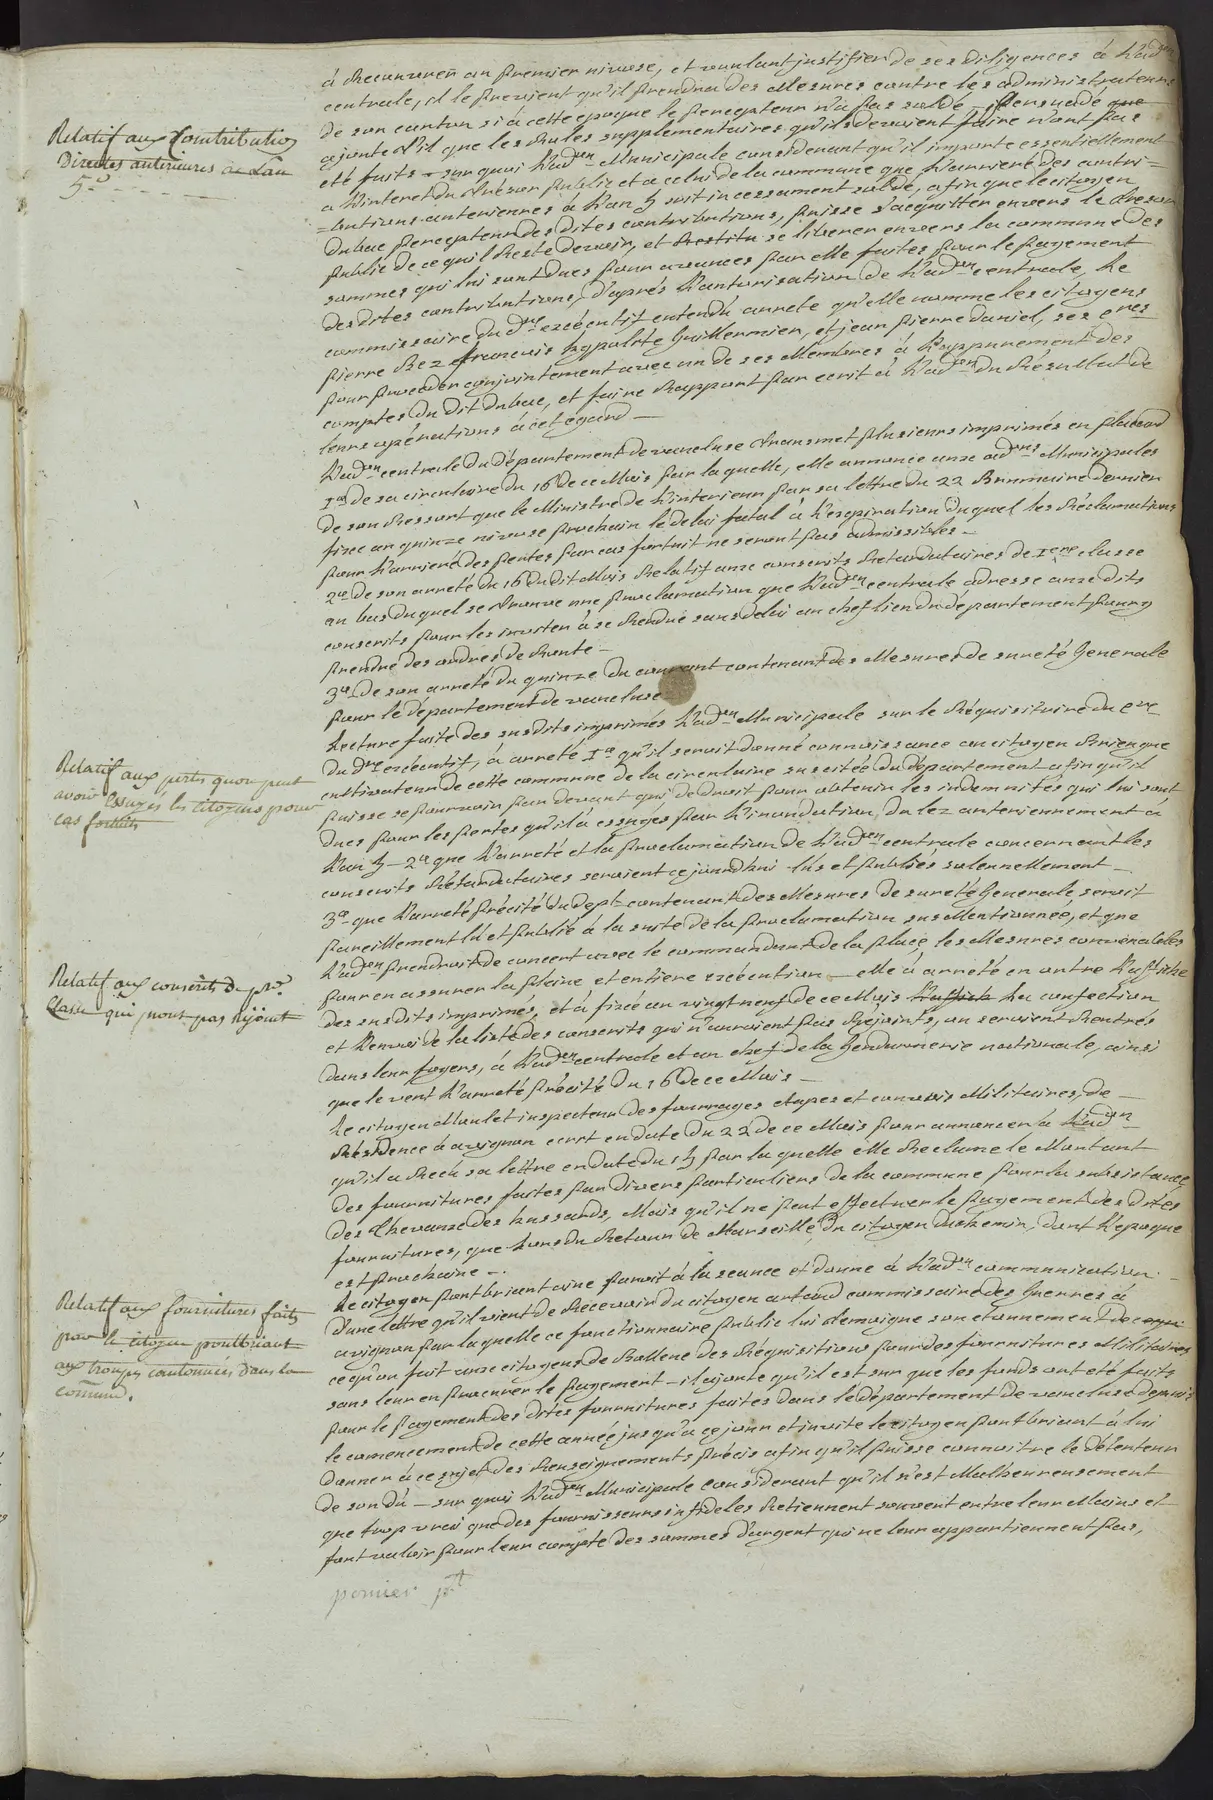 à Recouvrer au premier nivose, et voulant justifier de ses diligences à L'ad.on
centrale, il le previent qu'il prendra des Mesures contre les administrateurs
de son canton si à cette epoque le percepteur n'a pas soldé — Persuadé que
ajoute t'il que les Roles supplementaires qu'ils devoient faire n'ont pas
Relatif aux Contributions
Directes anterieures a Lan
5.e
eté faits — sur quoi L'ad.on Municipale considerant qu'il importe essentiellement
a L'interet du Trésor public et a celui de la commune que L'arrieré des contri=
=butions anterieures à L'an 5 soit incessament soldé, afin que le citoyen
Dubac percepteur des dites contributions, puisse s'acquitter envers le tresor
public de ce qu'il Reste devoir, et Restitu se liberer envers la commune des
sommes qui lui sont dues pour avances par elle faites pour le payement
des dites contributions, d'après L'autorisation de L'ad.on centrale, Le
commissaire du d.re executif entendu arrete qu'elle nomme les citoyens
pierre Rez francois hypolite Guillermier, et jean pierre daniel, ses c.res
pour proceder conjointement avec un de ses Membres à L'appurement des
comptes du dit Dubac, et faire Rapport par ecrit à L'ad.on du Résultat de
leurs opérations à cet egard —
L'ad.on centrale du département de vaucluse transmet plusieurs imprimés en placard
1.o de sa circulaire du 16 de ce Mois par laquelle, elle annonce aux ad.ons Municipales
de son Ressort que le Ministre de L'interieur par sa lettre du 22 Brumaire dernier
fixe au quinze nivose prochain le delai fatal à L'expiration duquel les Réclamations
pour L'arrieré des pertes par cas fortuit ne seront pas admissibles —
2.o de son arreté du 16 du dit Mois Relatif aux conscrits Retardataires de 1.ere classe
au bas duquel se trouve une proclamation que L'ad.on centrale adresse aux dits
conscrits pour les inviter à se Rendre sans delai au chef lieu du département pour y
prendre des ordres de Route —
3.o de son arreté du quinze du courant contenant des Mesures de sureté Generale
pour le département de vaucluse
Lecture faite des susdits imprimés L'ad.on Municipale sur le Réquisitoire du c.re
du d.re executif, à arreté 1.o qu'il seroit donné connoissance au citoyen
Relatif aux pertes quon peut
avoir Essuyés les citoyens pour
cas fortuits
cultivateur de cette commune de la circulaire suscitée du département afin qu'il
puisse se pourvoir par devant qui de droit pour obtenir les indemnités qui lui sont
dues pour les pertes qu'il à essuyés par L'inondation du lez anterieurement à
L'an 5 — 2.o que L'arreté et la proclamation de L'ad.on centrale concernant les
conscrits Rétardataires seroient ce jourdhui lus et publiés solennellement —
3.o que L'arreté précité du dept. contenant des Mesures de sureté Generale, seroit
pareillement lu et publié à la suite de la proclamation sus Mentionnée, et que
L'ad.on prendroit de concert avec le commandant de la place, les Mesures convenables
Relatif aux conscrits de p.re
Classe qui n'ont pas Rejoint
pour en assurer la pleine et entiere exécution — elle à arreté en outre L'affiche
des susdits imprimés, et à fixé au vingt neuf de ce Mois La confection
et L'envoi de la liste des conscrits qui n'auroient pas Réjoints, ou seroient Rentrés
dans leur foyers, à L'ad.on centrale et au chef de la Gendarmerie nationale, ainsi
que le veut L'arreté précité du 16 de ce Mois —
Le citoyen Moulet inspecteur des fourrages etapes et convois Militaires, de
Résidence à avignon ecrit en date du 22 de ce Mois pour annoncer à L'ad.on
qu'il a Recu sa lettre en date du 15 par laquelle elle Reclame le Montant
des fournitures faites par divers particuliers de la commune pour la subsistance
des Chevaux des hussards, Mais qu'il ne peut effectuer le payement des dites
fournitures, que Lors du Retour de Marseille du citoyen duchemin, dont L'epoque
est prochaine —
Le citoyen pontbriant ainé paroit à la seance et donne à L'ad.on communication
Relatif aux fournitures faites
par le citoyen pontbriant
aux troupes cantonnées dans la
comune.
d'une lettre qu'il vient de Récevoir du citoyen artaud commissaire des Guerres à
avignon par laquelle ce fonctionnaire public lui temoigne son etonnement de
ce qu'on fait aux citoyens de Bollene des Réquisitions pour des fournitures Militaires
sans leur en procurer le payement — il ajoute qu'il est sur que les fonds ont eté faits
pour le payement des dites fournitures faites dans le département de vaucluse depuis
le comencement de cette année jusqu'a ce jour et invite le citoyen pontbriant à lui
donner à ce sujet des Renseignements précis afin qu'il puisse connoitre le détenteur
de son dû — sur quoi L'ad.on Municipale considerant qu'il n'est Malheureusement
que trop vrai que des fournisseurs infideles Retiennent souvent entre leur Mains et
font valoir pour leur compte des sommes d'argent qui ne leur appartiennent pas,